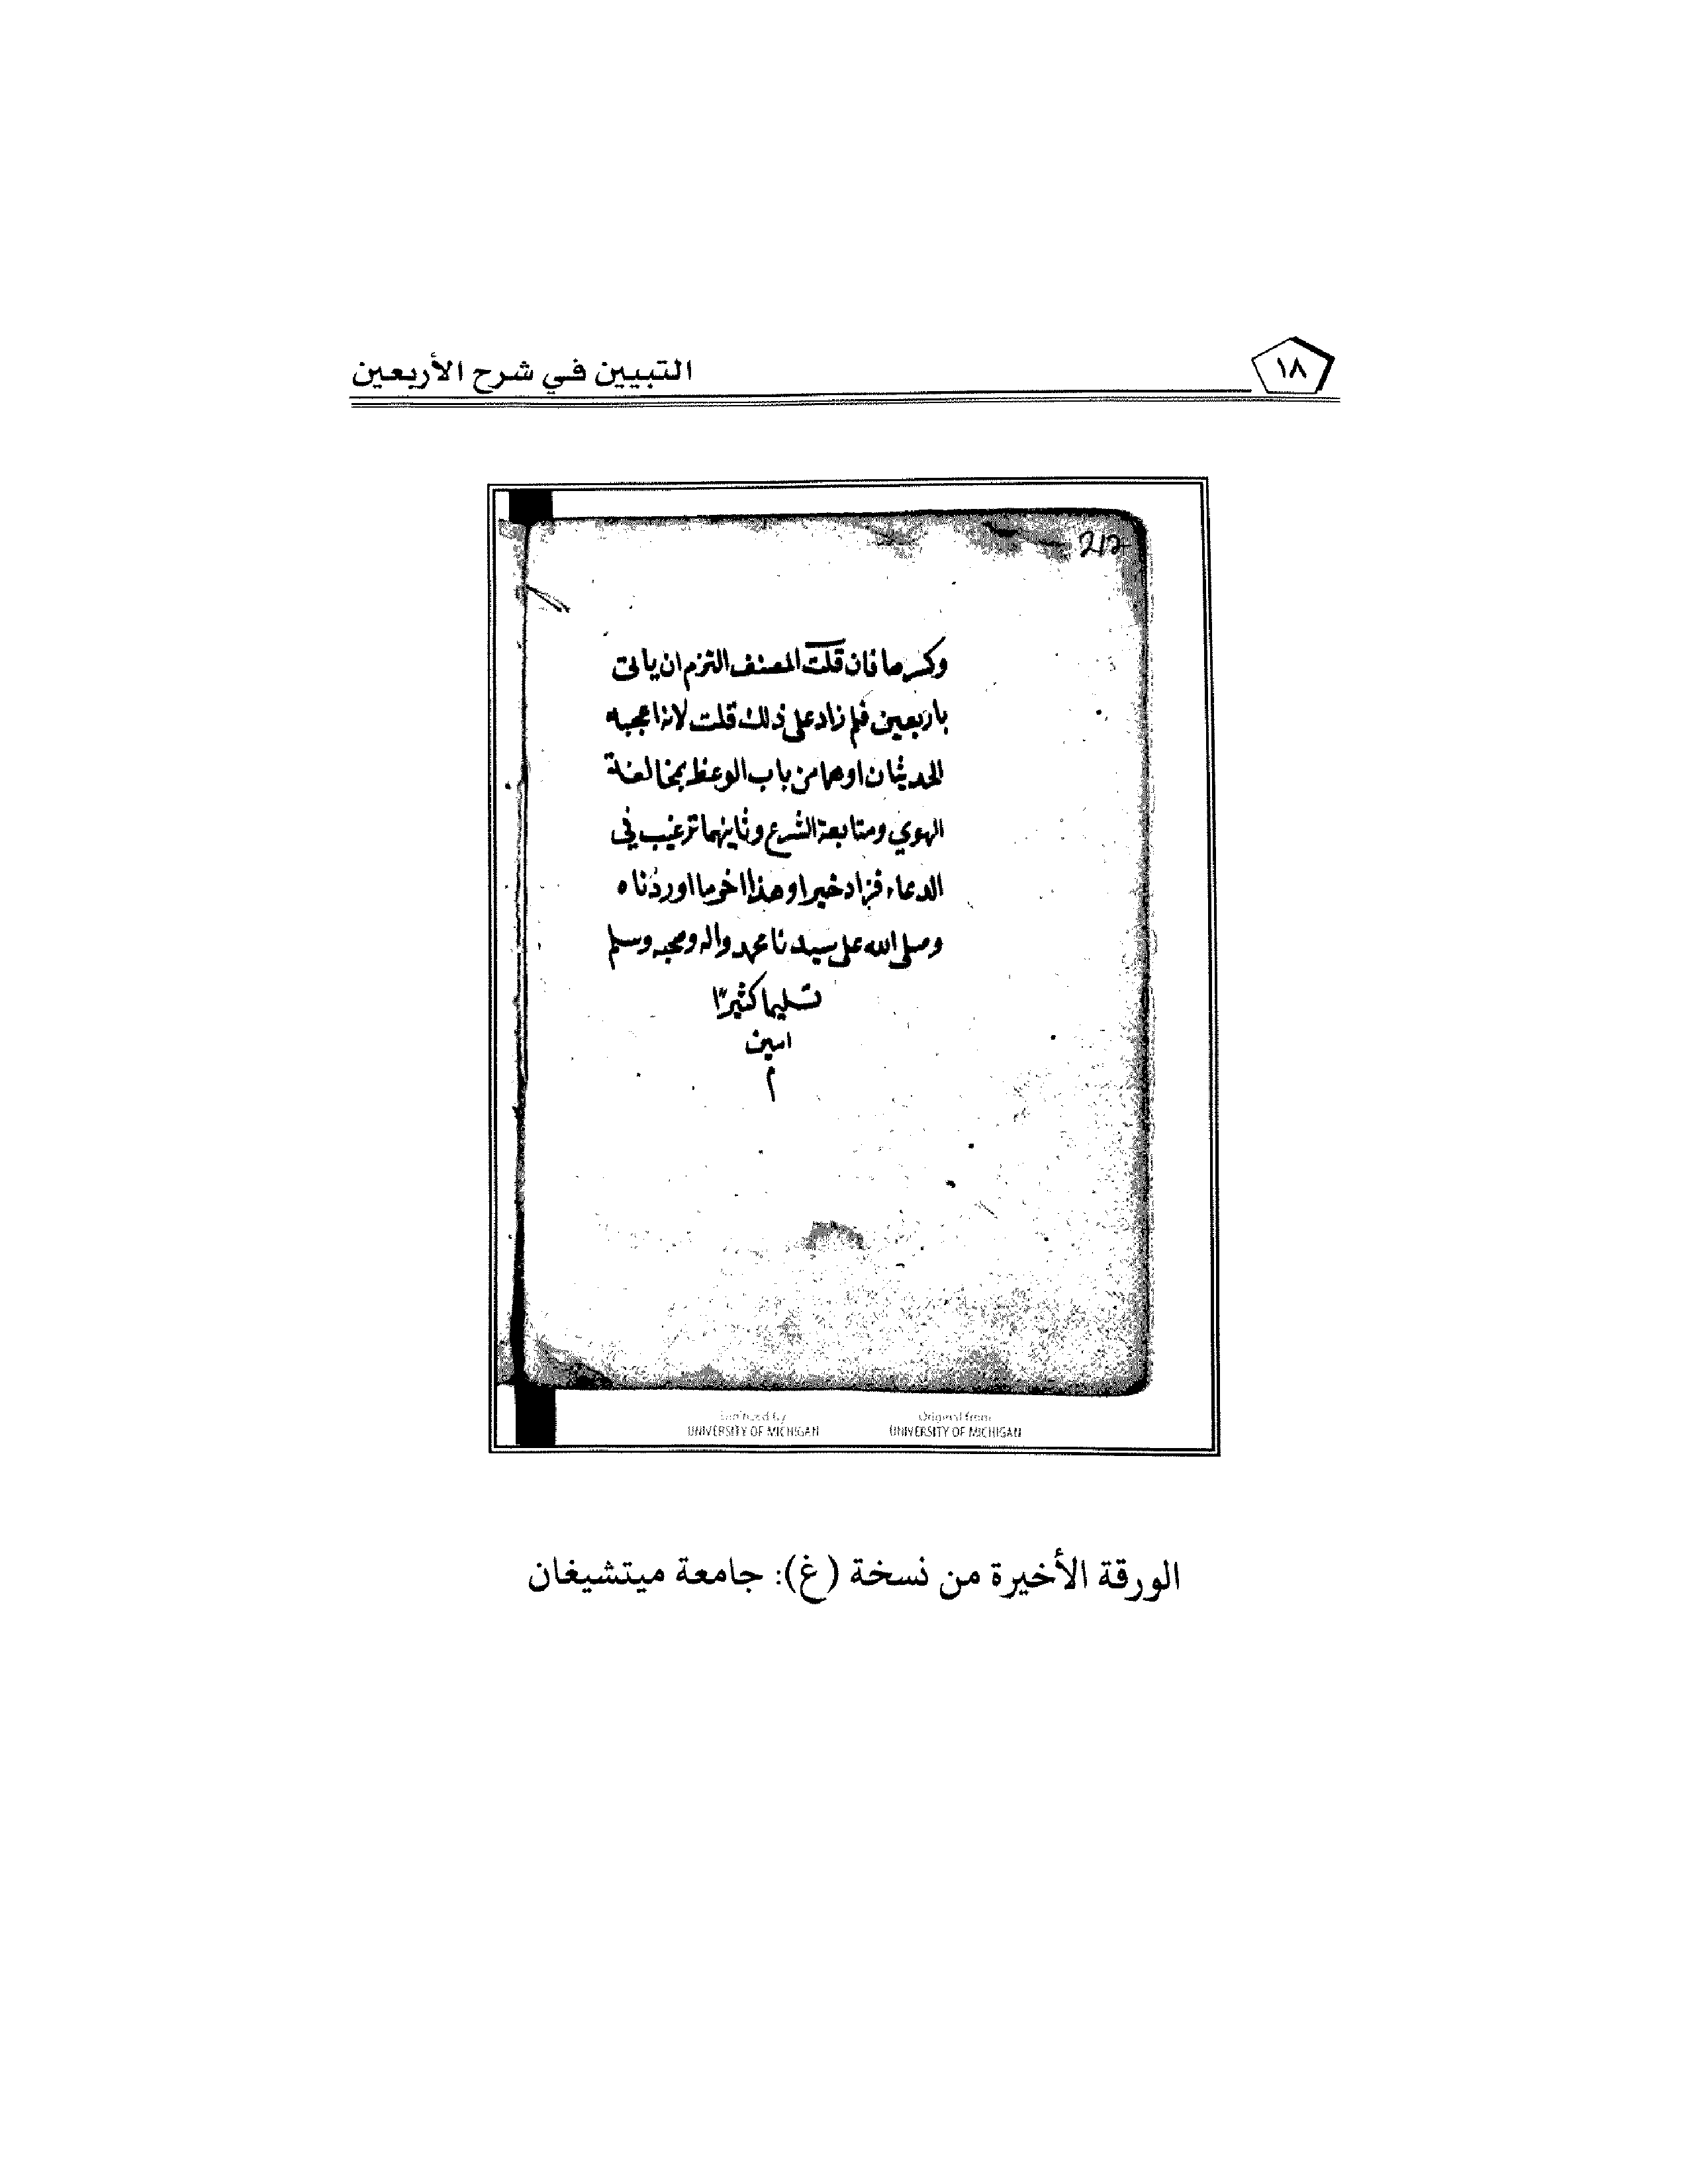 ١٨
التبيين في شرح الأربعين
212
وكرما فان قلت المصنف التزم ان ياتى
باربعين فلم زاد على ذلك قلت لانه اعجبه
الحديثان اوهما من باب الوعظ بمخالفة
الهوي ومتابعة الشرع وثانيهما ترغيب في
الدعاء فزاد خيرا وهذا اخر ما اوردناه
وصلى الله على سيدنا محمد واله وصحبه وسلم
تسليما كثيرًا
امين
م
Digitized by
UNIVERSITY OF MICHIGAN
Original from
UNIVERSITY OF MICHIGAN
الورقة الأخيرة من نسخة (غ): جامعة ميتشيغان